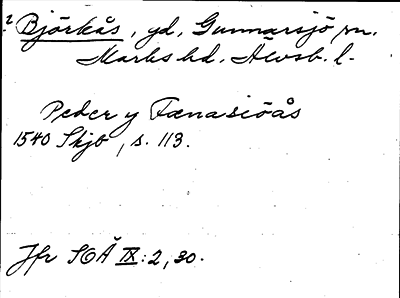 ? Björkås, gd, Gunnarsjö sn.
Marks hd. Älvsb. l.
Peder y Tænasiöås
1540 Skjb, s. 113.
Jfr SOÄ IX:2, 30.